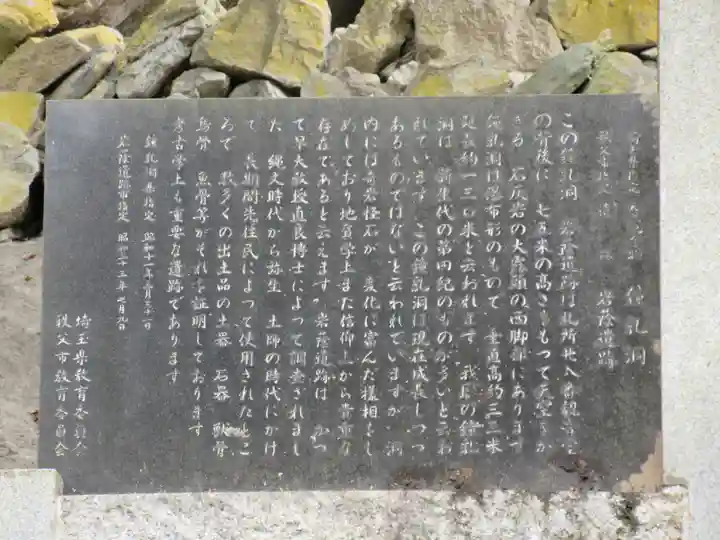 鍾乳洞
岩蔭遺跡
この鍾乳洞 岩蔭遺跡は札所廿八番観音堂
の背後に 七五米の高さをもって天空にか
ける 石灰岩の大露頭の西脚部にあります
鍾乳洞は瀑布形のもので 垂直高約三三米
延長約一三〇米と云われます 我国の鍾乳
洞は 新生代の第四紀のものが多いと云わ
れています この鍾乳洞は現在成長しつつ
あるものではないと云われていますが 洞
内には奇岩怪石が 変化に富んだ様相をし
めしており地質学上また信仰上から貴重な
存在であると云えます 岩蔭遺跡は かつ
て早大教授直良博士によって調査されまし
た 縄文時代から弥生 土師の時代にかけ
て 長期間先住民によって使用されたとこ
ろで 数多くの出土品の土器 石器 獣骨
鳥骨 魚骨等がそれを証明しております
考古学上も重要な遺跡であります
鍾乳洞県指定 昭和十一年三月三十一日
岩蔭遺跡市指定 昭和三十三年 七月九日
埼玉県教育委員会
秩父市教育委員会